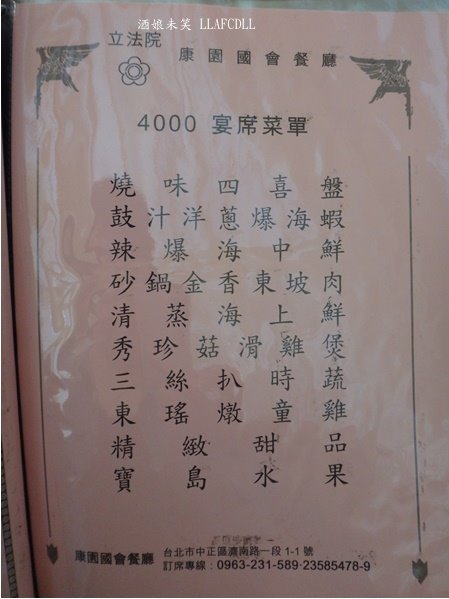 酒娘未笑 LLAFCDLL
立法院
康園國會餐廳
4000 宴席菜單
燒味四喜盤
鼓汁洋蔥爆海蝦
辣爆海中鮮
砂鍋金香東坡肉
清蒸海上鮮
秀珍菇滑雞煲
三絲扒時蔬
東瑤燉童雞
精緻甜品
寶島水果
康園國會餐廳
台北市中正區濟南路一段 1-1 號
訂席專線：0963-231-589·23585478-9